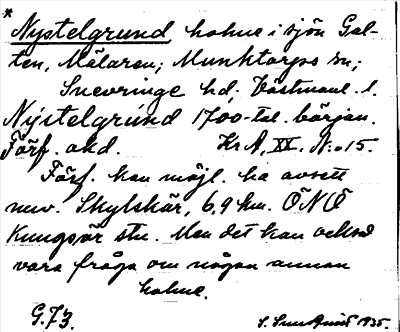 * Nystelgrund holme i sjön Gal-
ten, Mälaren; Munktorps sn;
Snevringe hd, Västmanl. l.
Nystelgrund 1700-tal. början.
Förf. okd. Kr A, XX, N:o 15.
Förf. kan möjl. ha avsett
nuv. Skylskär, 6,9 km. ÖNÖ
Kungsör stn. Men det kan också
vara fråga om någon annan
holme.
G.73. S. 1935.